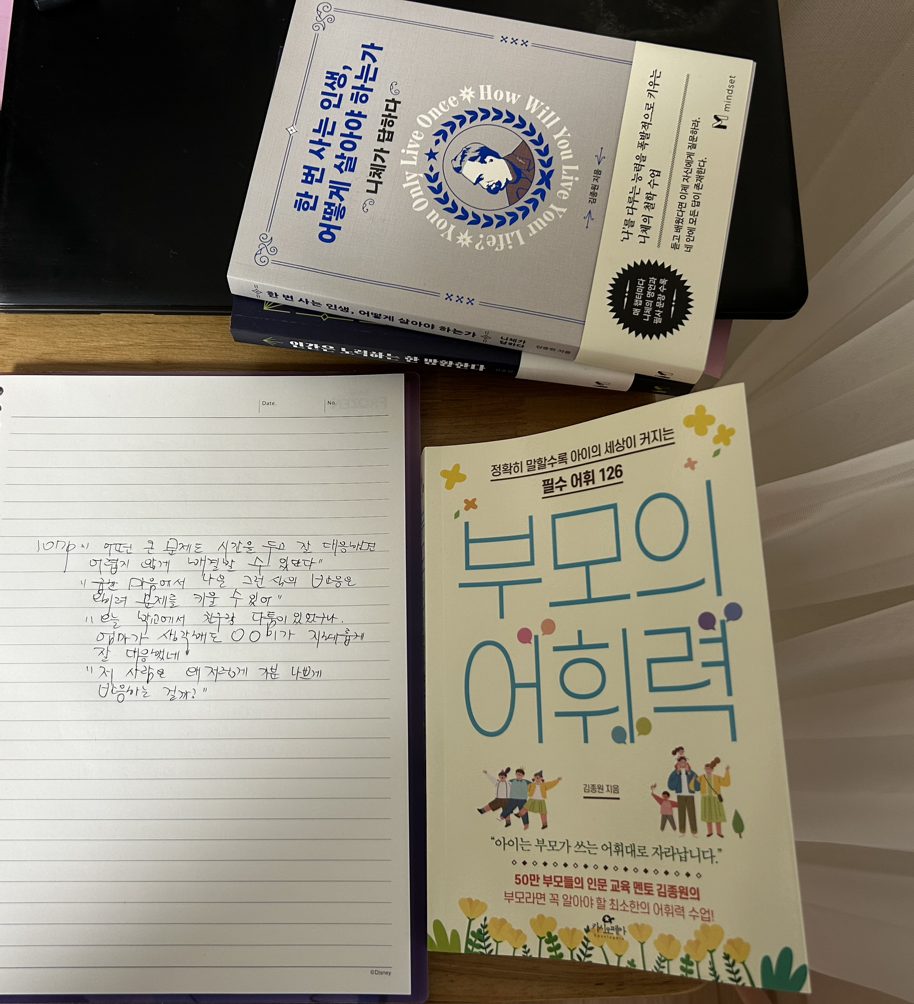 한 번 사는 인생,
어떻게 살아야 하는가
니체가 답하다
You Only Live Once
How Will You Live Your Life?
김종원 지음
'나'를 다루는 능력을 폭발적으로 키우는
니체의 철학 수업
듣고 배웠다면 이제 자신에게 질문하라.
네 안에 모든 답이 존재한다.
매 챕터마다
니체의 명언과
필사 문장 수록
mindset
한 번 사는 인생, 어떻게 살아야 하는가
니체가
답하다
김종원 지음
Date.
No.
어떤 큰 문제도 시간을 두고 잘 대응하면
어렵지 않게 해결할 수 있단다"
"급한 마음에서 나온 그런 식의 반응은
오히려 문제를 키울 수 있어"
"오늘 학교에서 친구랑 다툼이 있었구나.
엄마가 생각해도 OO이가 지혜롭게
잘 대응했네"
"저 사람은 왜 저렇게 기분 나쁘게
반응하는 걸까?"
©Disney
정확히 말할수록 아이의 세상이 커지는
필수 어휘 126
부모의
어휘력
김종원 지음
"아이는 부모가 쓰는 어휘대로 자라납니다."
50만 부모들의 인문 교육 멘토 김종원의
부모라면 꼭 알아야 할 최소한의 어휘력 수업!